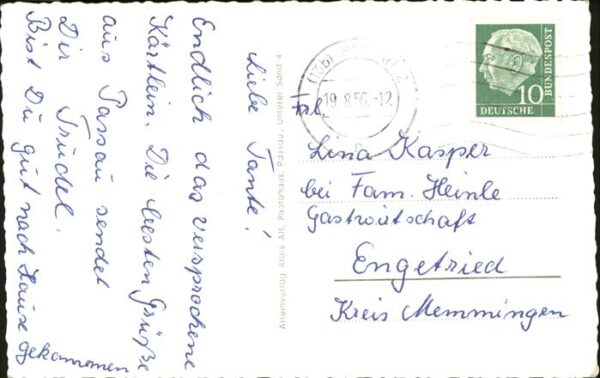 Liebe Tante!
Endlich das versprochene
Kärtlein. Die besten Grüße
aus Passau sendet
Dir Trudel.
Bist Du gut nach Hause
gekommen
Alleinverlag Alois Alt, Papierhaus, Passau, Unterer Sand 4
19.8.56.-12
DEUTSCHE
BUNDESPOST
10
Frl.
Lina Kasper
bei Fam. Heinle
Gastwirtschaft
Engetried
Kreis Memmingen